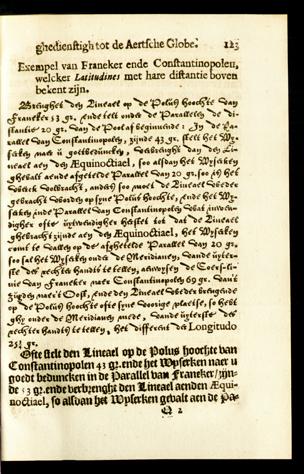 ghedienstigh tot de Aertsche Globe. 123
Exempel van Franeker ende Constantinopolen,
welcker Latitudines met hare distantie boven
bekent zijn.
Brenghet den Lineael op de Polus hoochte van
Franeker 53 gr. ende telt onder de Parallelen de di-
stantie 20 gr. van de Pool af beginnende: In de Pa-
rallel van Constantinopolen, zijnde 43 gr. stelt het Wy-
serken naer u goetbeduncken, verbrenght den Li-
neael aen den Æquinoctiael, soo alsdan het Wyserken
ghevalt aende afgetelde Parallel van 20 gr. soo is het
werck volbracht, anders soo moet de Lineael weder
gebracht worden op syne Polus hoochte, ende het Wy-
serken inde Parallel van Constantinopolen wat inwen-
digher ofte uytwendigher gestelt tot dat de Lineael
gebracht zijnde aen den Æquinoctiael, het Wyserken
comt te vallen op de afghetelde Parallel van 20 gr.
soo sal het Wyserken onder de Meridianen, vande uyter-
ste der rechter handt te tellen, aenwysen de Coers-li-
nie van Franeker naer Constantinopolen 69 gr. van't
Zuyden naer't Oost, ende den Lineael weder brengende
op de Polus hoochte ofte syne voorige plaetse, so hebt
ghy onder de Meridianen mede, vande uyterste der
rechter handt te tellen, het different der Longitudo
25½ gr.
Ofte stelt den Lineael op de Polus hoochte van
Constantinopolen 43 gr. ende het Wyserken naer u
goedt beduncken in de Parallel van Franeker/zijn-
de 53 gr. ende verbrenght den Lineael aenden Æqui-
noctiael, so alsvan het Wyserken gevalt aen de Pa-
Q 2